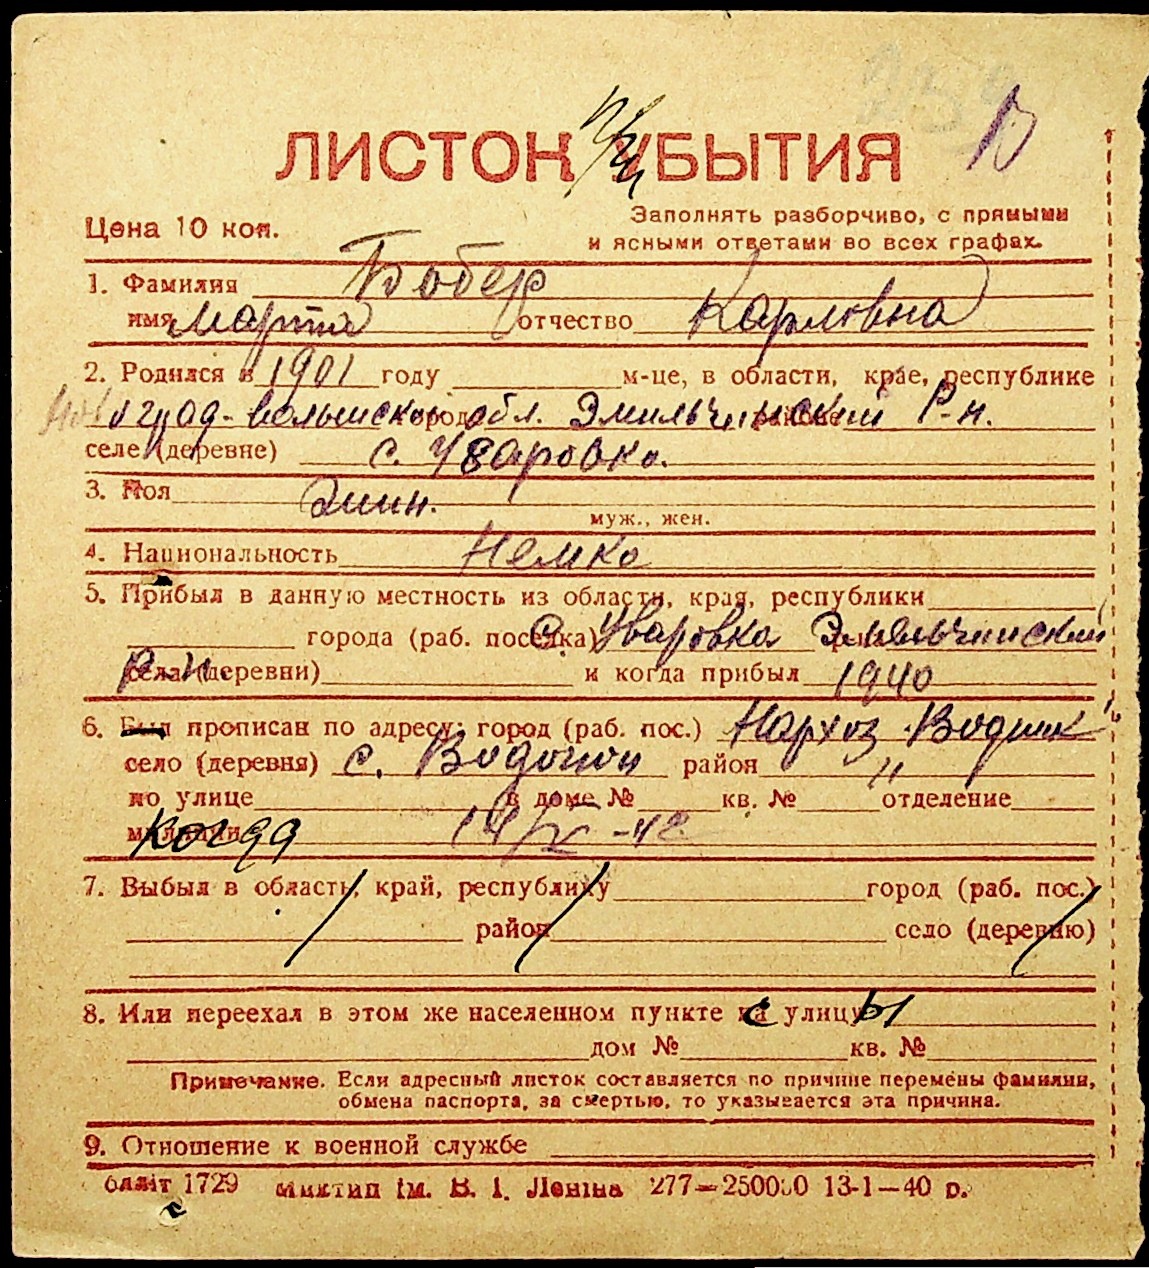 ЛИСТОК УБЫТИЯ
Цена 10 коп.
Заполнять разборчиво, с прямыми
и ясными ответами во всех графах.
1. Фамилия Бобер
имя Марта отчество Карловна
2. Родился в 1901 году м-це, в области, крае, республике
Новоград-Волынской обл. Эмильчинский Р-н.
селе (деревне) с. Уваровка.
3. Пол Жин.
муж., жен.
4. Национальность Немка
5. Прибыл в данную местность из области, края, республики
города (раб. поселка) С. Уваровка Эмильчинский
р-н. села (деревни) и когда прибыл 1940
6. Был прописан по адресу: город (раб. пос.) Нархоз Водник
село (деревня) с. Водопой район "
по улице в доме № кв. № отделение
милиции когда 14/IX-42
7. Выбыл в область, край, республику город (раб. пос.)
район село (деревню)
8. Или переехал в этом же населенном пункте с улицы
дом № кв. №
Примечание. Если адресный листок составляется по причине перемены фамилии,
обмена паспорта, за смертью, то указывается эта причина.
9. Отношение к военной службе
блліт 1729 Миктип ім. В. І. Леніна 277—250000 13-1—40 р.